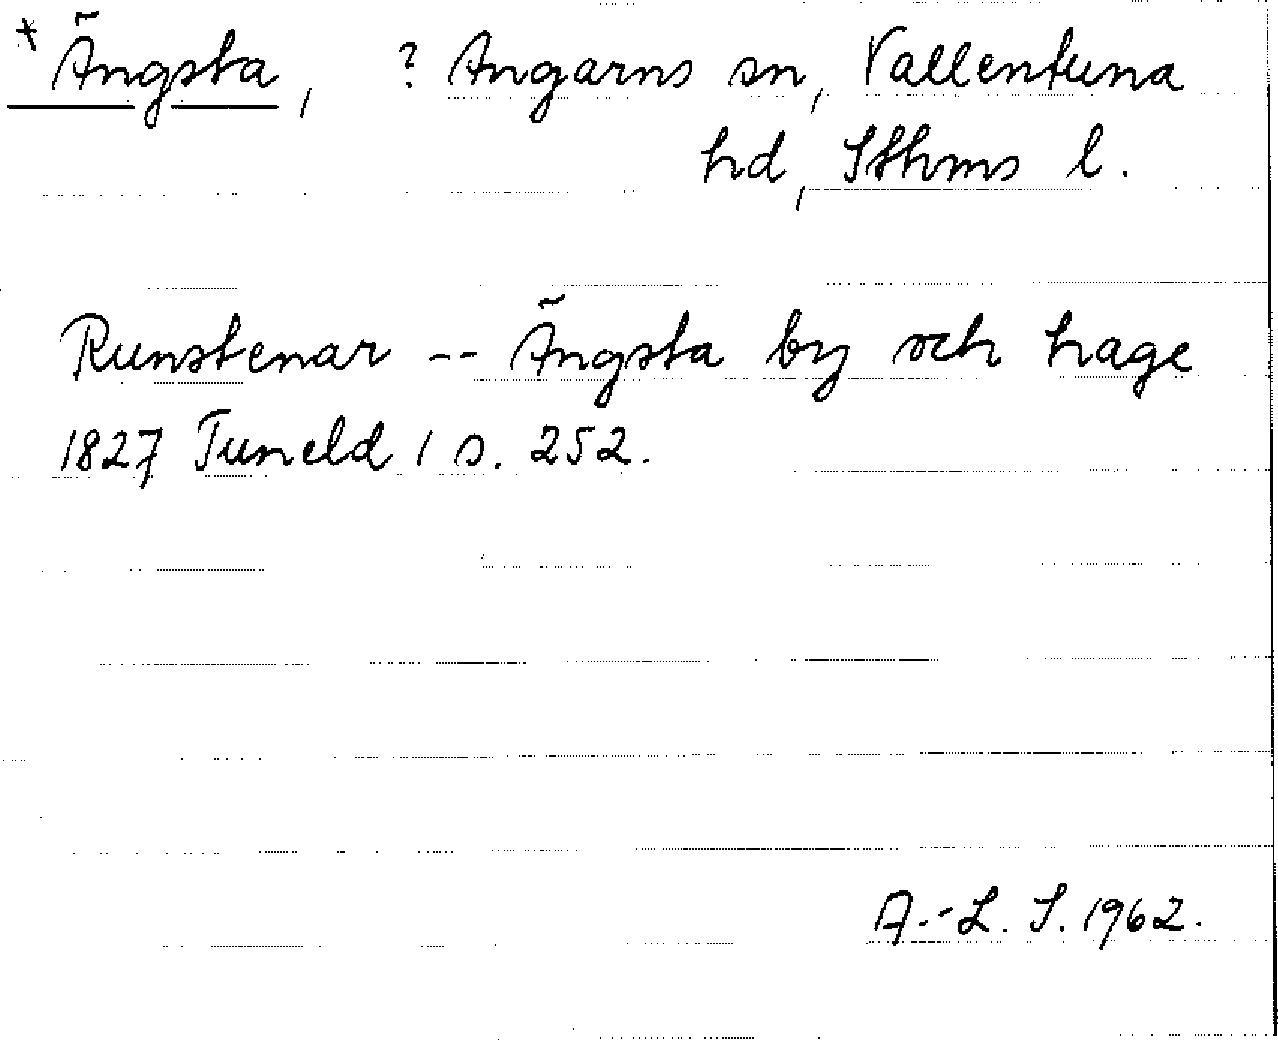 * Ängsta, ? Angarns sn, Vallentuna
hd, Sthms l.
Runstenar -- Ängsta by och hage
1827 Tuneld 1 s. 252.
A.-L. S. 1962.